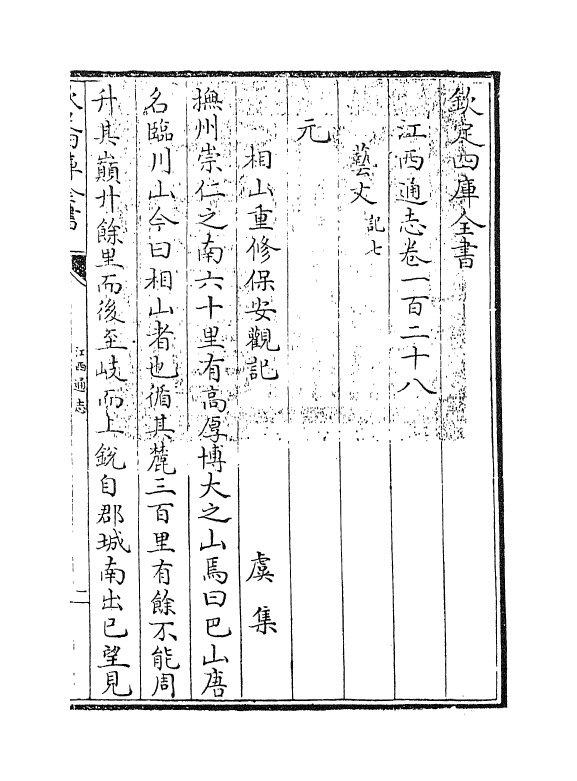 欽定四庫全書
江西通志卷一百二十八
藝文 記七
元
相山重修保安觀記 虞集
撫州崇仁之南六十里有高厚博大之山焉曰巴山唐
名臨川山今曰相山者也循其麓三百里有餘不能周
升其巔廾餘里而後至岐而上銳自郡城南出已望見
江西通志